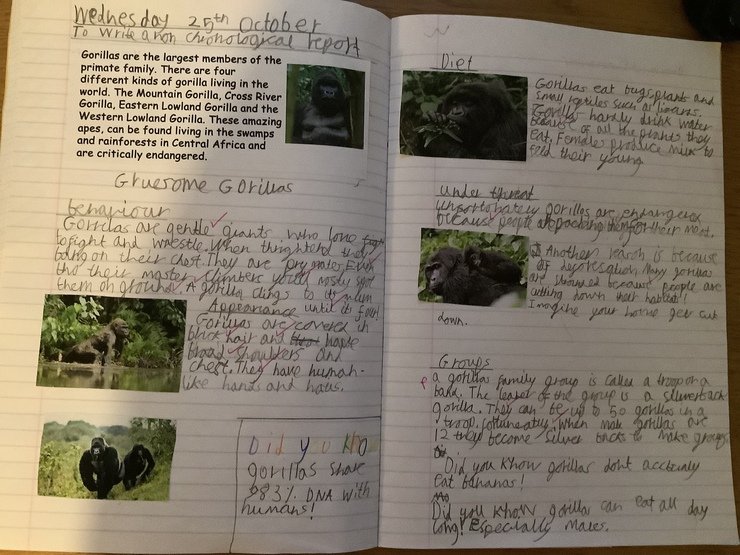 Wednesday 25th October
To write a non chronological report
Gorillas are the largest members of the
primate family. There are four
different kinds of gorilla living in the
world. The Mountain Gorilla, Cross River
Gorilla, Eastern Lowland Gorilla and the
Western Lowland Gorilla. These amazing
apes, can be found living in the swamps
and rainforests in Central Africa and
are critically endangered.
Gruesome Gorillas
behaviour
Gorillas are gentle giants who love
to fight and wrestle. When thrightend they
bang on their chest. They are
tho their master climbers youll mostly spot
them on ground. A gorilla clings to its mum
until its four
Appearance
Gorillas are covered in
black hair and have
broad shoulders and
chest. They have human-
like hands and
Did you kno
gorillas share
98.3% DNA with
humans!
Diet
Gorillas eat bugs, plants and
small reptiles such as lizards.
Gorillas hardly drink water
because of all the plants they
eat. Females produce milk to
feed their young.
under threat
unfortunately gorillas are endangered
because people are poaching them for their meat.
Another reason is because
of deforestation. Many gorillas
are because people are
cutting down their habitat!
Imagine your home get cut
down.
Groups
a gorillas family group is called a troop or a
band. The leader of the group is a silverback
gorilla. They can be up to 50 gorillas in a
troop. when male gorillas are
12 they become silver backs to make groups
Did you know gorillas dont acctualy
eat bananas!
Did you know gorilla can eat all day
long! Especially males.